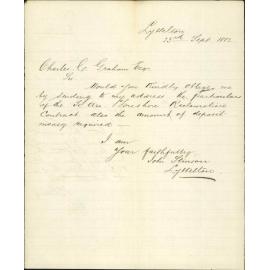 Lyttelton
23rd Sept 1882
Charles C. Graham Esq
Sir
Would you Kindly oblige me
by sending to my address the particulars
of the Foreshore Reclamation
Contract also the amount of deposit
money required
I am
Your faithfully
John Stinson
Lyttelton